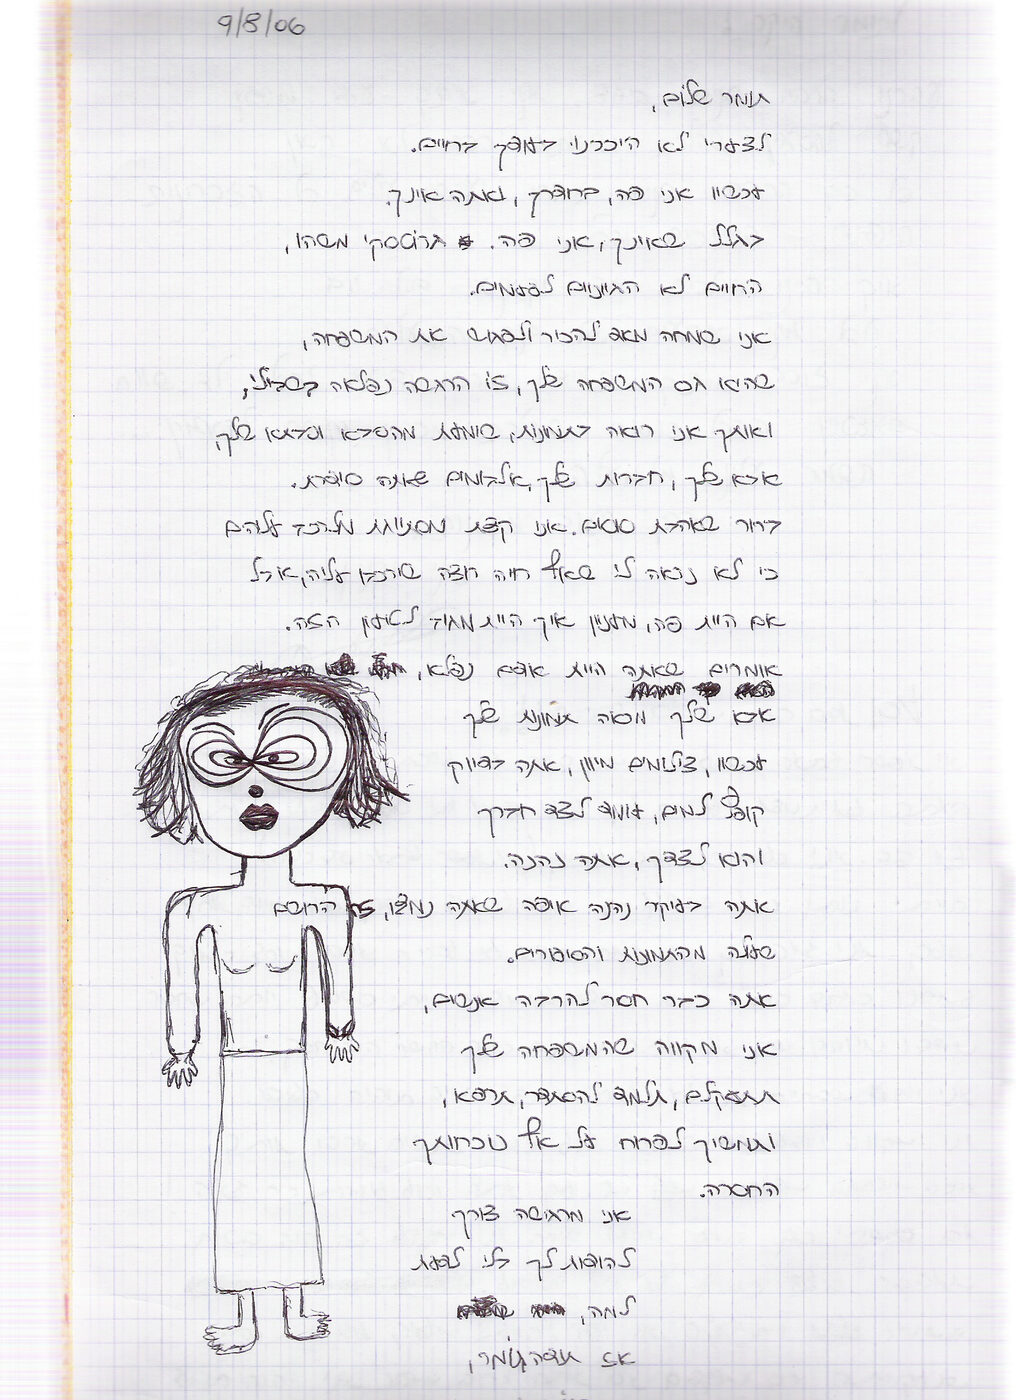 9/8/06
תומר שלום,
לצערי לא היכרנו בעודך בחיים.
עכשיו אני פה, בחדרך, ואתה אינך.
בגלל שאינך, אני פה. תרוסקי משהו,
החיים לא הגיוניים לפעמים.
אני שמחה מאד להכיר ולפגוש את המשפחה,
שהיא גם המשפחה שלך, זו הרגשה נפלאה בשבילי,
ואותך אני רואה בתמונות, שומעת מהסבא וסבתא שלך,
אבא שלך, חברות שלך, אלבומים שאתה סופרת.
ברור שאהבת סוסים. אני קצת מסתייגת מלרכב עליהם
כי לא נראה לי שאף חיה רוצה שירכבו עליה, אבל
אם היית פה, מעניין איך היית מגיב לטיעון הזה.
אומרים שאתה היית אדם נפלא,
אבא שלך מראה תמונות שלך
עכשיו, צילומים מיוון, אתה בדיוק
קופץ למים, עומד לצד חברך
והוא לצדך, אתה נהנה.
אתה בעיקר נהנה איפה שאתה נמצא, זה הרושם
שעולה מהתמונות והסיפורים.
אתה כבר חסר להרבה אנשים,
אני מקווה שהמשפחה שלך
תתאקלם, תלמד להסתדר, תרפא,
ותמשיך לפרוח על אף נוכחותך
החסרה.
אני מרגישה צורך
להודות לך בלי לדעת
למה,
אז תודה תומר,